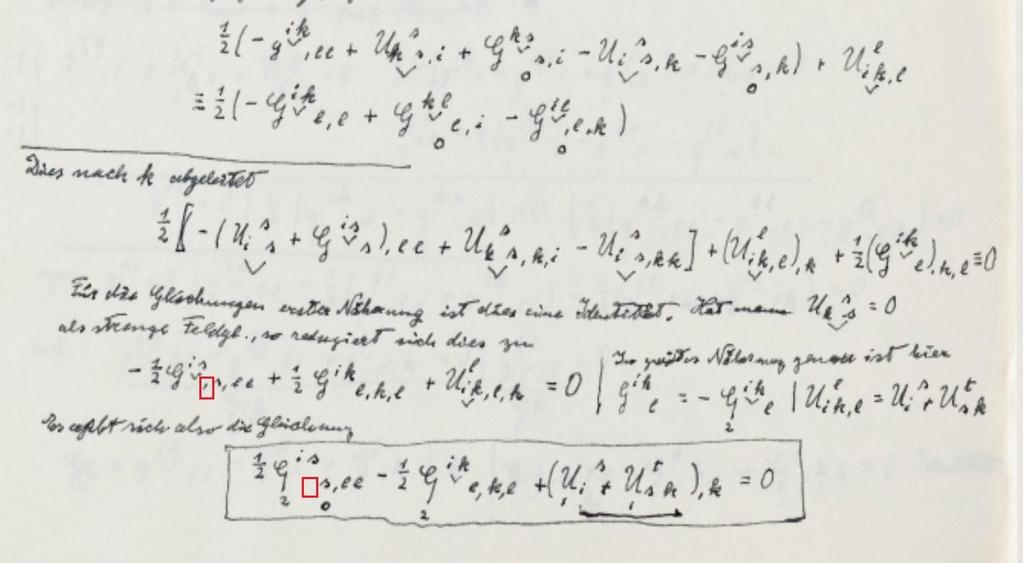 ½(-g^{ik}_{∨},ll + U_k^s_{∨ s},i + G^{ks}_{∨ 0} s,i - U_i^s_{∨ s},k - G^{is}_{∨ 0} s,k) + U_{ik}^l_{∨},l
≡ ½(-G^{ik}_{∨} l,l + G^{kl}_{∨ 0} l,i - G^{il}_{∨ 0},l,k)
Dies nach k abgeleitet
½[-(U_i^s_{∨ s} + G^{is}_{∨} s),ll + U_k^s_{∨ s},k,i - U_i^s_{∨ s},kk] + (U_{ik}^l_{∨},l),k + ½(G^{ik}_{∨} l),k,l ≡ 0
Für die Gleichungen erster Näherung ist dies eine Identität. Hat man U_k^s_{∨ s} = 0
als strenge Feldgl., so reduziert sich dies zu
-½ G^{is}_{∨} s,ll + ½ G^{ik} l,k,l + U_{ik}^l_{∨},l,k = 0 | In Näherung genau ist hier
G^{ik} l = - G_2^{ik}_{∨} l | U_{ik}^l,l = U_i^s_t U_{sk}^t
Es ergibt sich also die Gleichung
½ G_2^{is} _0 s,ll - ½ G_2^{ik}_{∨} l,k,l + (U_i^s_t U_{sk}^t),k = 0